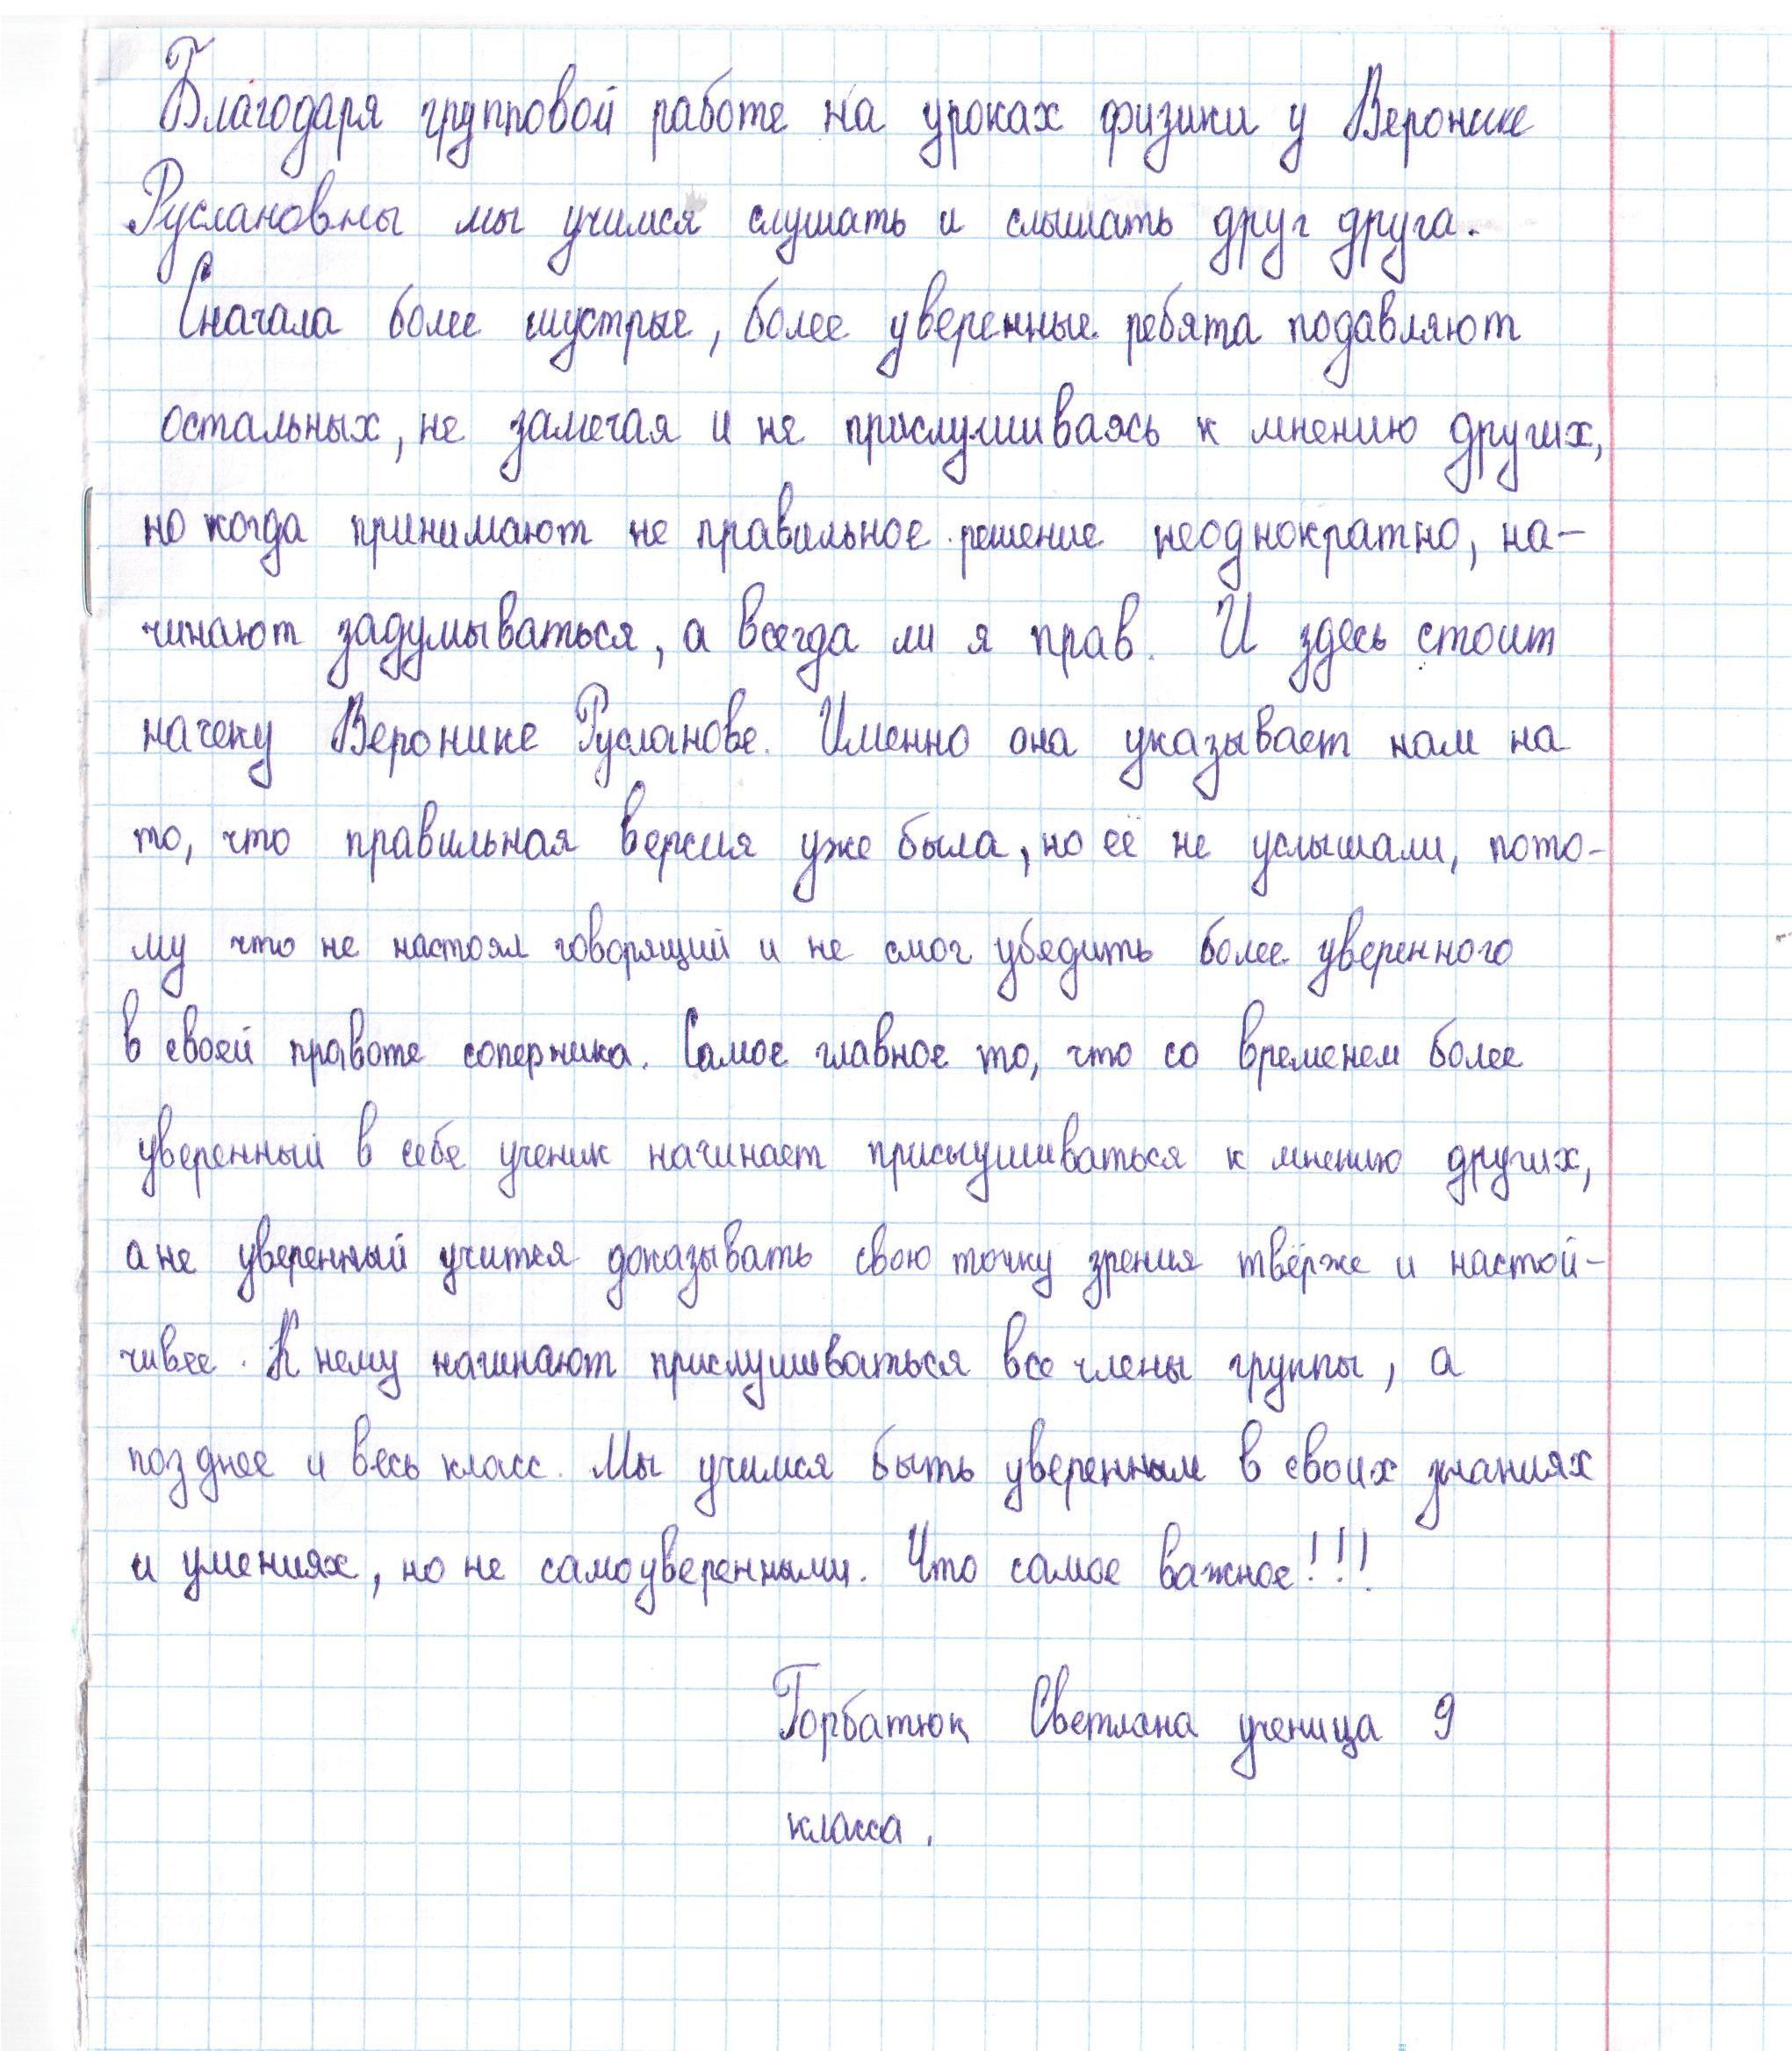 Благодаря групповой работе на уроках физики у Веронике
Руслановны мы учимся слушать и слышать друг друга.
Сначала более шустрые, более уверенные ребята подавляют
остальных, не замечая и не прислушиваясь к мнению других,
но когда принимают не правильное решение неоднократно, на-
чинают задумываться, а всегда ли я прав. И здесь стоит
начеку Веронике Руслановe. Именно она указывает нам на
то, что правильная версия уже была, но её не услышали, пото-
му что не настоял говорящий и не смог убедить более уверенного
в своей правоте соперника. Самое главное то, что со временем более
уверенный в себе ученик начинает прислушиваться к мнению других,
а не уверенный учится доказывать свою точку зрения твёрже и настой-
чивее. К нему начинают прислушиваться все члены группы, а
позднее и весь класс. Мы учимся быть уверенным в своих знаниях
и умениях, но не самоуверенными. Что самое важное!!!
Горбатюк Светлана ученица 9
класса.